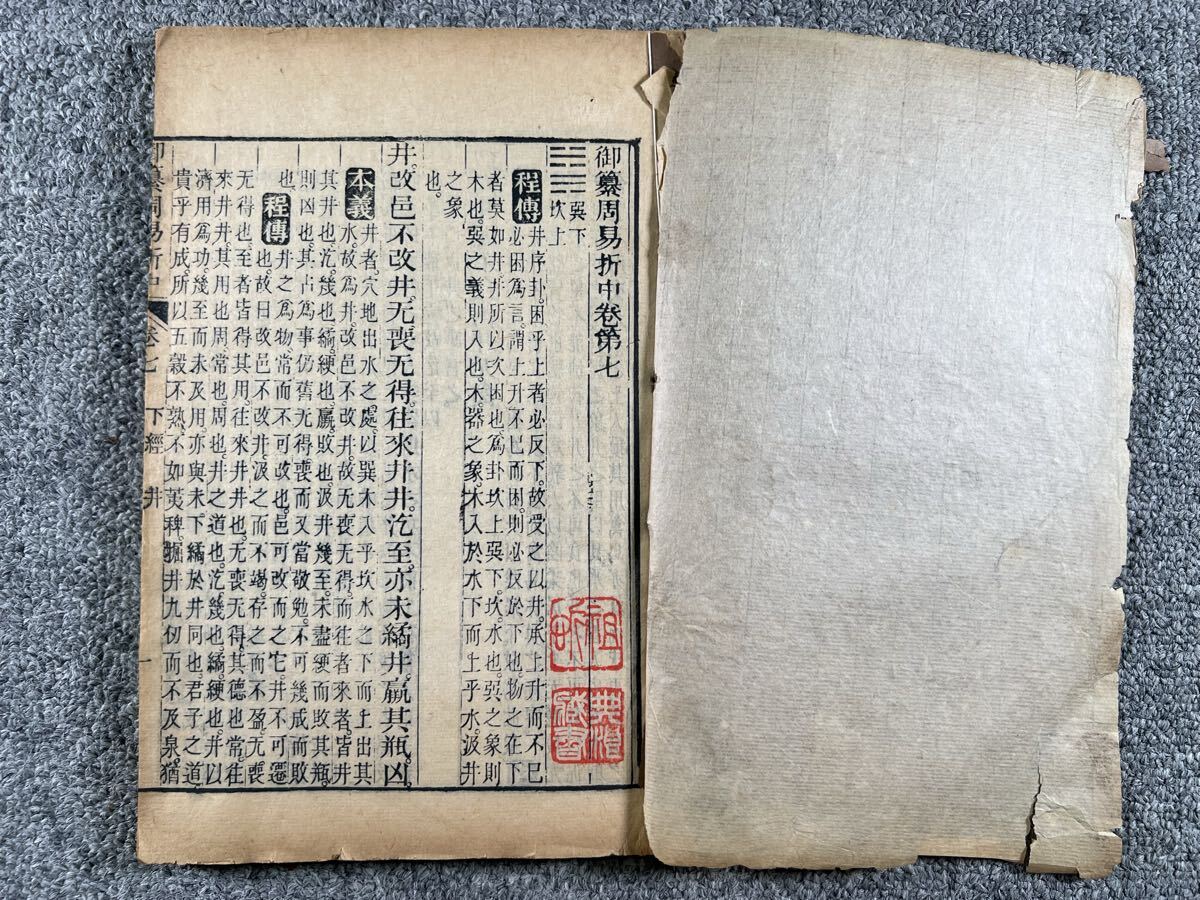 御纂周易折中卷第七
巽下
坎上
程傳
井序卦。困乎上者必反下。故受之以井。承上升而不已
必困爲言。謂上升不已而困。則必反於下也。物之在下
者莫如井。井所以次困也。爲卦坎上巽下。坎。水也。巽之象則
木也。巽之義則入也。木。器之象。木入於水下而上乎水。汲井
之象
也。
井。改邑不改井。无喪无得。往來井井。汔至。亦未繘井。羸其瓶。凶。
本義
井者。穴地出水之處。以巽木入乎坎水之下而上出其
水。故爲井。改邑不改井。故无喪无得。而往者來者。皆井
其井也。汔。幾也。繘。綆也。羸。敗也。汲井幾至。未盡綆而敗其瓶。
則凶也。其占爲事仍舊无得喪。而又當敬勉。不可幾成而敗
也。
程傳
井之爲物。常而不可改也。邑可改而之它。井不可遷
也。故曰改邑不改井。汲之而不竭。存之而不盈。无喪
无得也。至者皆得其用。往來井井也。无喪无得。其德也常。往
來井井。其用也周。常也周也。井之道也。汔。幾也。繘。綆也。井以
濟用爲功。幾至而未及用。亦與未下繘於井同也。君子之道
貴乎有成。所以五穀不熟。不如荑稗。掘井九仞而不及泉。猶
御纂周易折中 卷七 下經 井 一
藏書